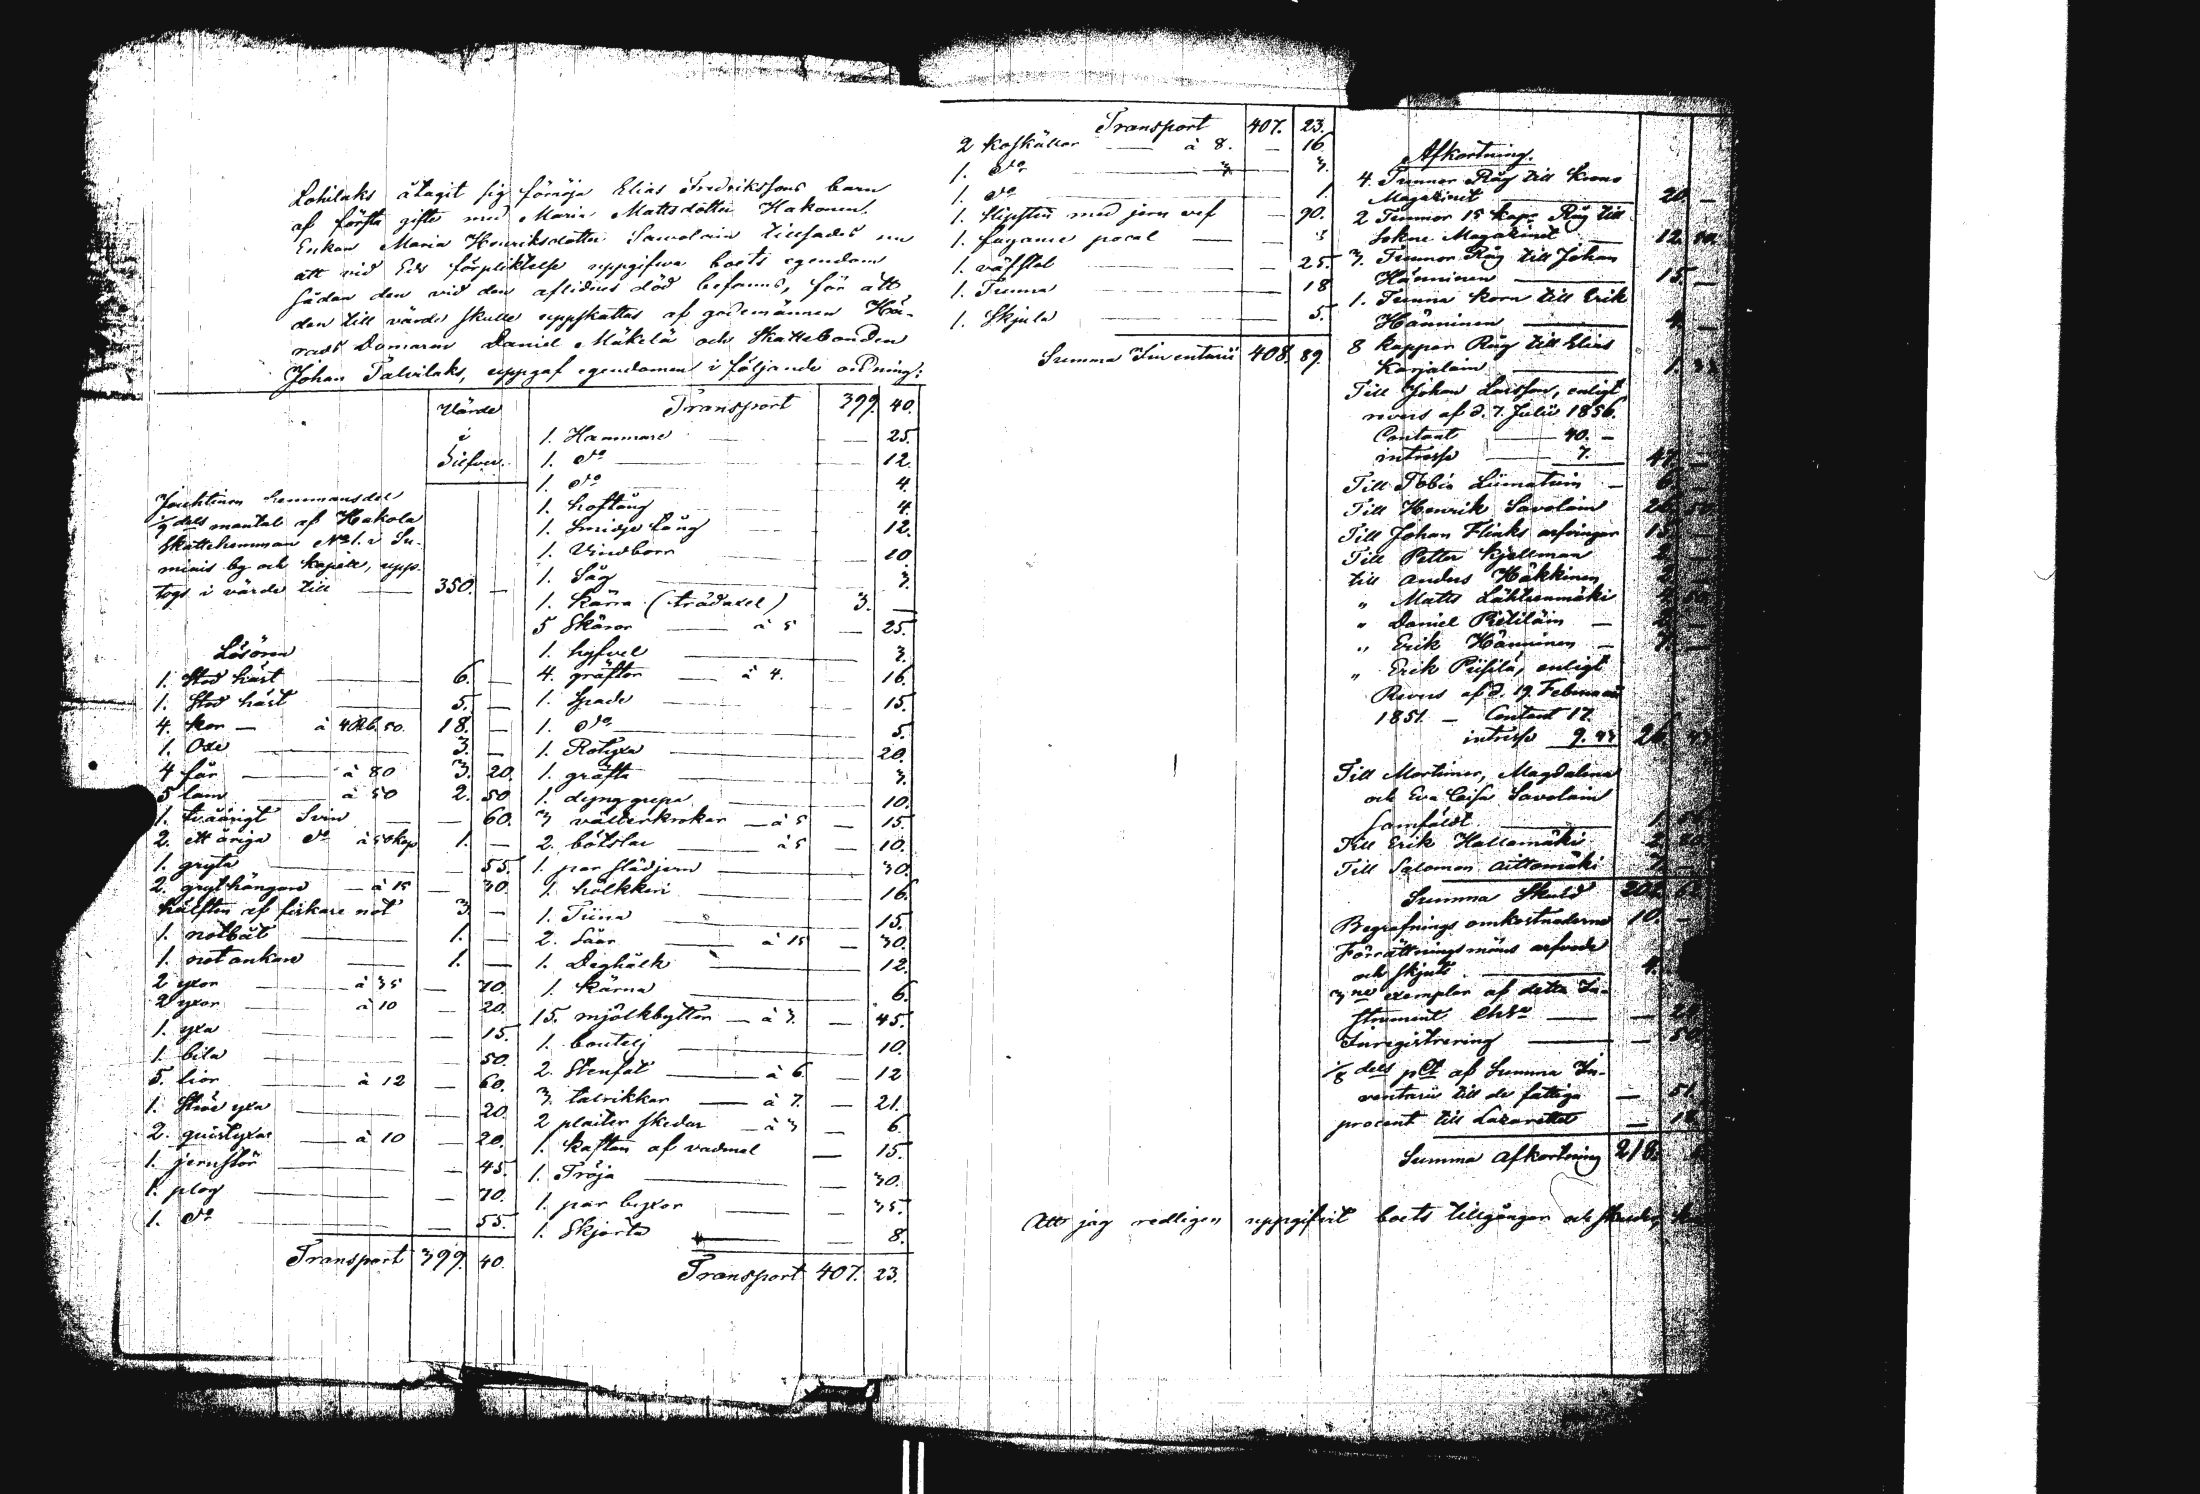 Lohilaks åtagit sig förnöja Elias Fredrikssons barn
af första giftet med Maria Mattsdotter Hakonen.
Enkan Maria Henriksdotter Savolain tillsades nu
att vid Eds förpliktelse uppgifva boets egendom
sådan den vid den aflidnes död befanns, för att
den till värde skulle uppskattas af godemännen Hä-
rads Domaren Daniel Mäkelä och Skattebonden
Johan Talvilaks, uppgaf egendomen i följande ordning:
Värde
i
Silfver.
hemmansdel
1/9 dels mantal af Hakola
Skattehemman No 1. i Su-
miais by och kapell, upp-
togs i värde till 350. —
Lösören
1. Stod häst 6. —
1. Stod häst 5. —
4. kor — à 4 Rub. 50. 18. —
1. Oxe 3. —
4 får à 80 3. 20.
5 lam à 50 2. 50
1. tvåårigt Svin — 60.
2. ett åriga do à 50 kop 1. —
1. gryta 55.
2. grythängare à 15 — 30.
hälften af fiskare not 3. —
1. notbåt 1. —
1. not ankare 1. —
2 yxor à 35 — 70.
2 yxor à 10 — 20.
1. yxa 15.
1. bila 50.
5. lior à 12 — 60.
1. yxa — 20.
2. qvistyxor à 10 — 20.
1. jernstör — 45.
1. plog — 70.
1. do — 55.
Transport 399. 40.
Transport 399. 40.
1. Hammare — 25.
1. do — 12.
1. do 4.
1. hoftång 4.
1. Smidje tång 12.
1. Vindborr 20
1. Såg 3.
1. Kärra (trädaxel) 3. —
5 Skäror à 5 — 25.
1. hyfvel 3.
4. gräftor à 4. 16.
1. Spade 15.
1. do 5.
1. Rotyxa 20.
1. gräfta 3.
1. dynggrepa 10.
3 välterkrokar — à 5 — 15.
2. båtslar à 5 — 10.
1. par slädjern 30.
1. holkkeri 16.
1. Tiina 15.
2. Såar à 15 — 30.
1. Deghålk 12.
1. Kärna 6.
15. mjölkbyttor — à 3. — 45.
1. boutelj 10.
2. Stenfat à 6. — 12
3. talrikkar à 7. — 21.
2 plaiter skedar — à 3 — 6.
1. kaftan af vadmal — 15.
1. Tröja — 30.
1. par byxor — 35.
1. Skjorta — 8.
Transport 407. 23.
Transport 407. 23.
2 koskällor à 8. — 16.
1. do 3.
1. do 1.
1. Slipsten med jern vef — 90.
1. fayance pocal — — 3
1. väfstol — 25.
1. Tunna — 18
1. Skjula — 5.
Summa Inventarii 408. 89.
Afkortning.
4. Tunnor Råg till Krono
Magazinet 20. —
2 Tunnor 15 kapr Råg till
Sokne Magazinet 12.
3. Tunnor Råg till Johan
Hänninen 15. —
1. Tunna Korn till Erik
Hänninen 4. —
8 kappor Råg till Elias
Karjalain 1.
Till Johan Larsson, enligt
revers af d. 7. Julii 1856.
Contant 40. —
intresse 7. 47. —
Till Tobias Liimatain — 6.
Till Henrik Savolain
Till Johan Flinks arfvingar 15.
Till Petter Kjellman 2.
till Anders Häkkinen
„ Matts Lähteenmäki
„ Daniel Pietiläin —
„ Erik Hänninen —
„ Erik Piispilä, enligt
Revers af d. 19. Februarii
1851. — Contant 17.
intresse 9. 43 26.
Till Mortimer, Magdalena
och Eva Caisa Savolain
samfäldt 1.
Till Erik Hallamäki 2.
Till Salomon Aittomäki
Summa Skuld
Begrafnings omkostnaderna 10. —
Förrättningsmäns arfvode
och skjuts 4.
3ne exemplar af detta In-
strument —
Inregistrering — 50.
1/8 dels pCt af Summa In-
ventarii till de fattiga — 51.
procent till Lazarettet —
Summa Afkortning 218.
Att jag redligen uppgifvit boets tillgångar och skulder